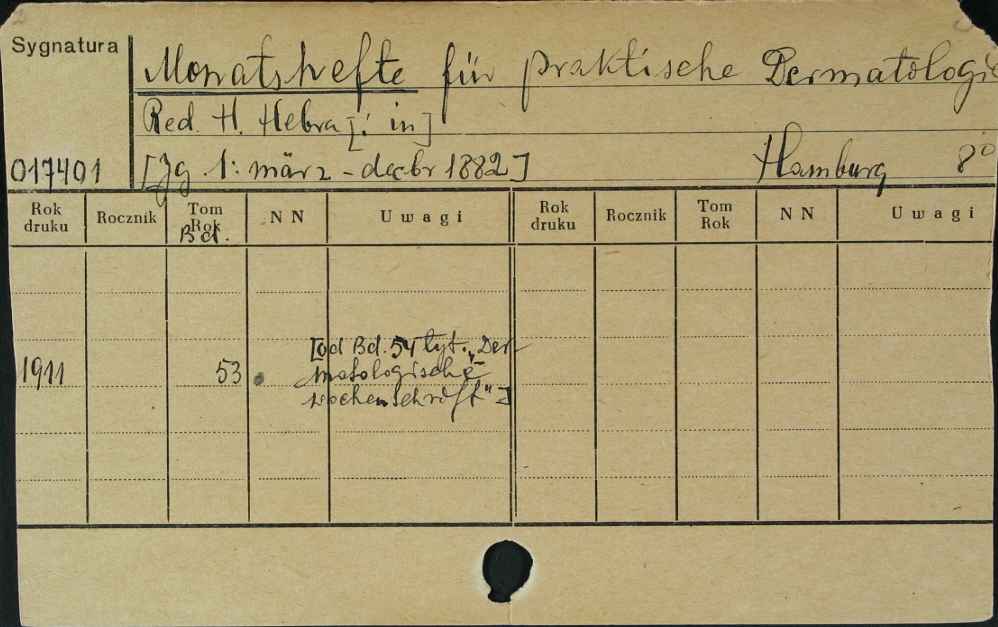 Sygnatura
Monatshefte für praktische Dermatologie
Red. H. Hebra [i in]
017401
[Jg. 1: märz - decbr 1882] Hamburg 8°
Rok druku Rocznik Tom Rok Bd. NN Uwagi Rok druku Rocznik Tom Rok NN Uwagi
[od Bd. 54 tyt. „Der
1911 53 matologische
wochenschrift"]